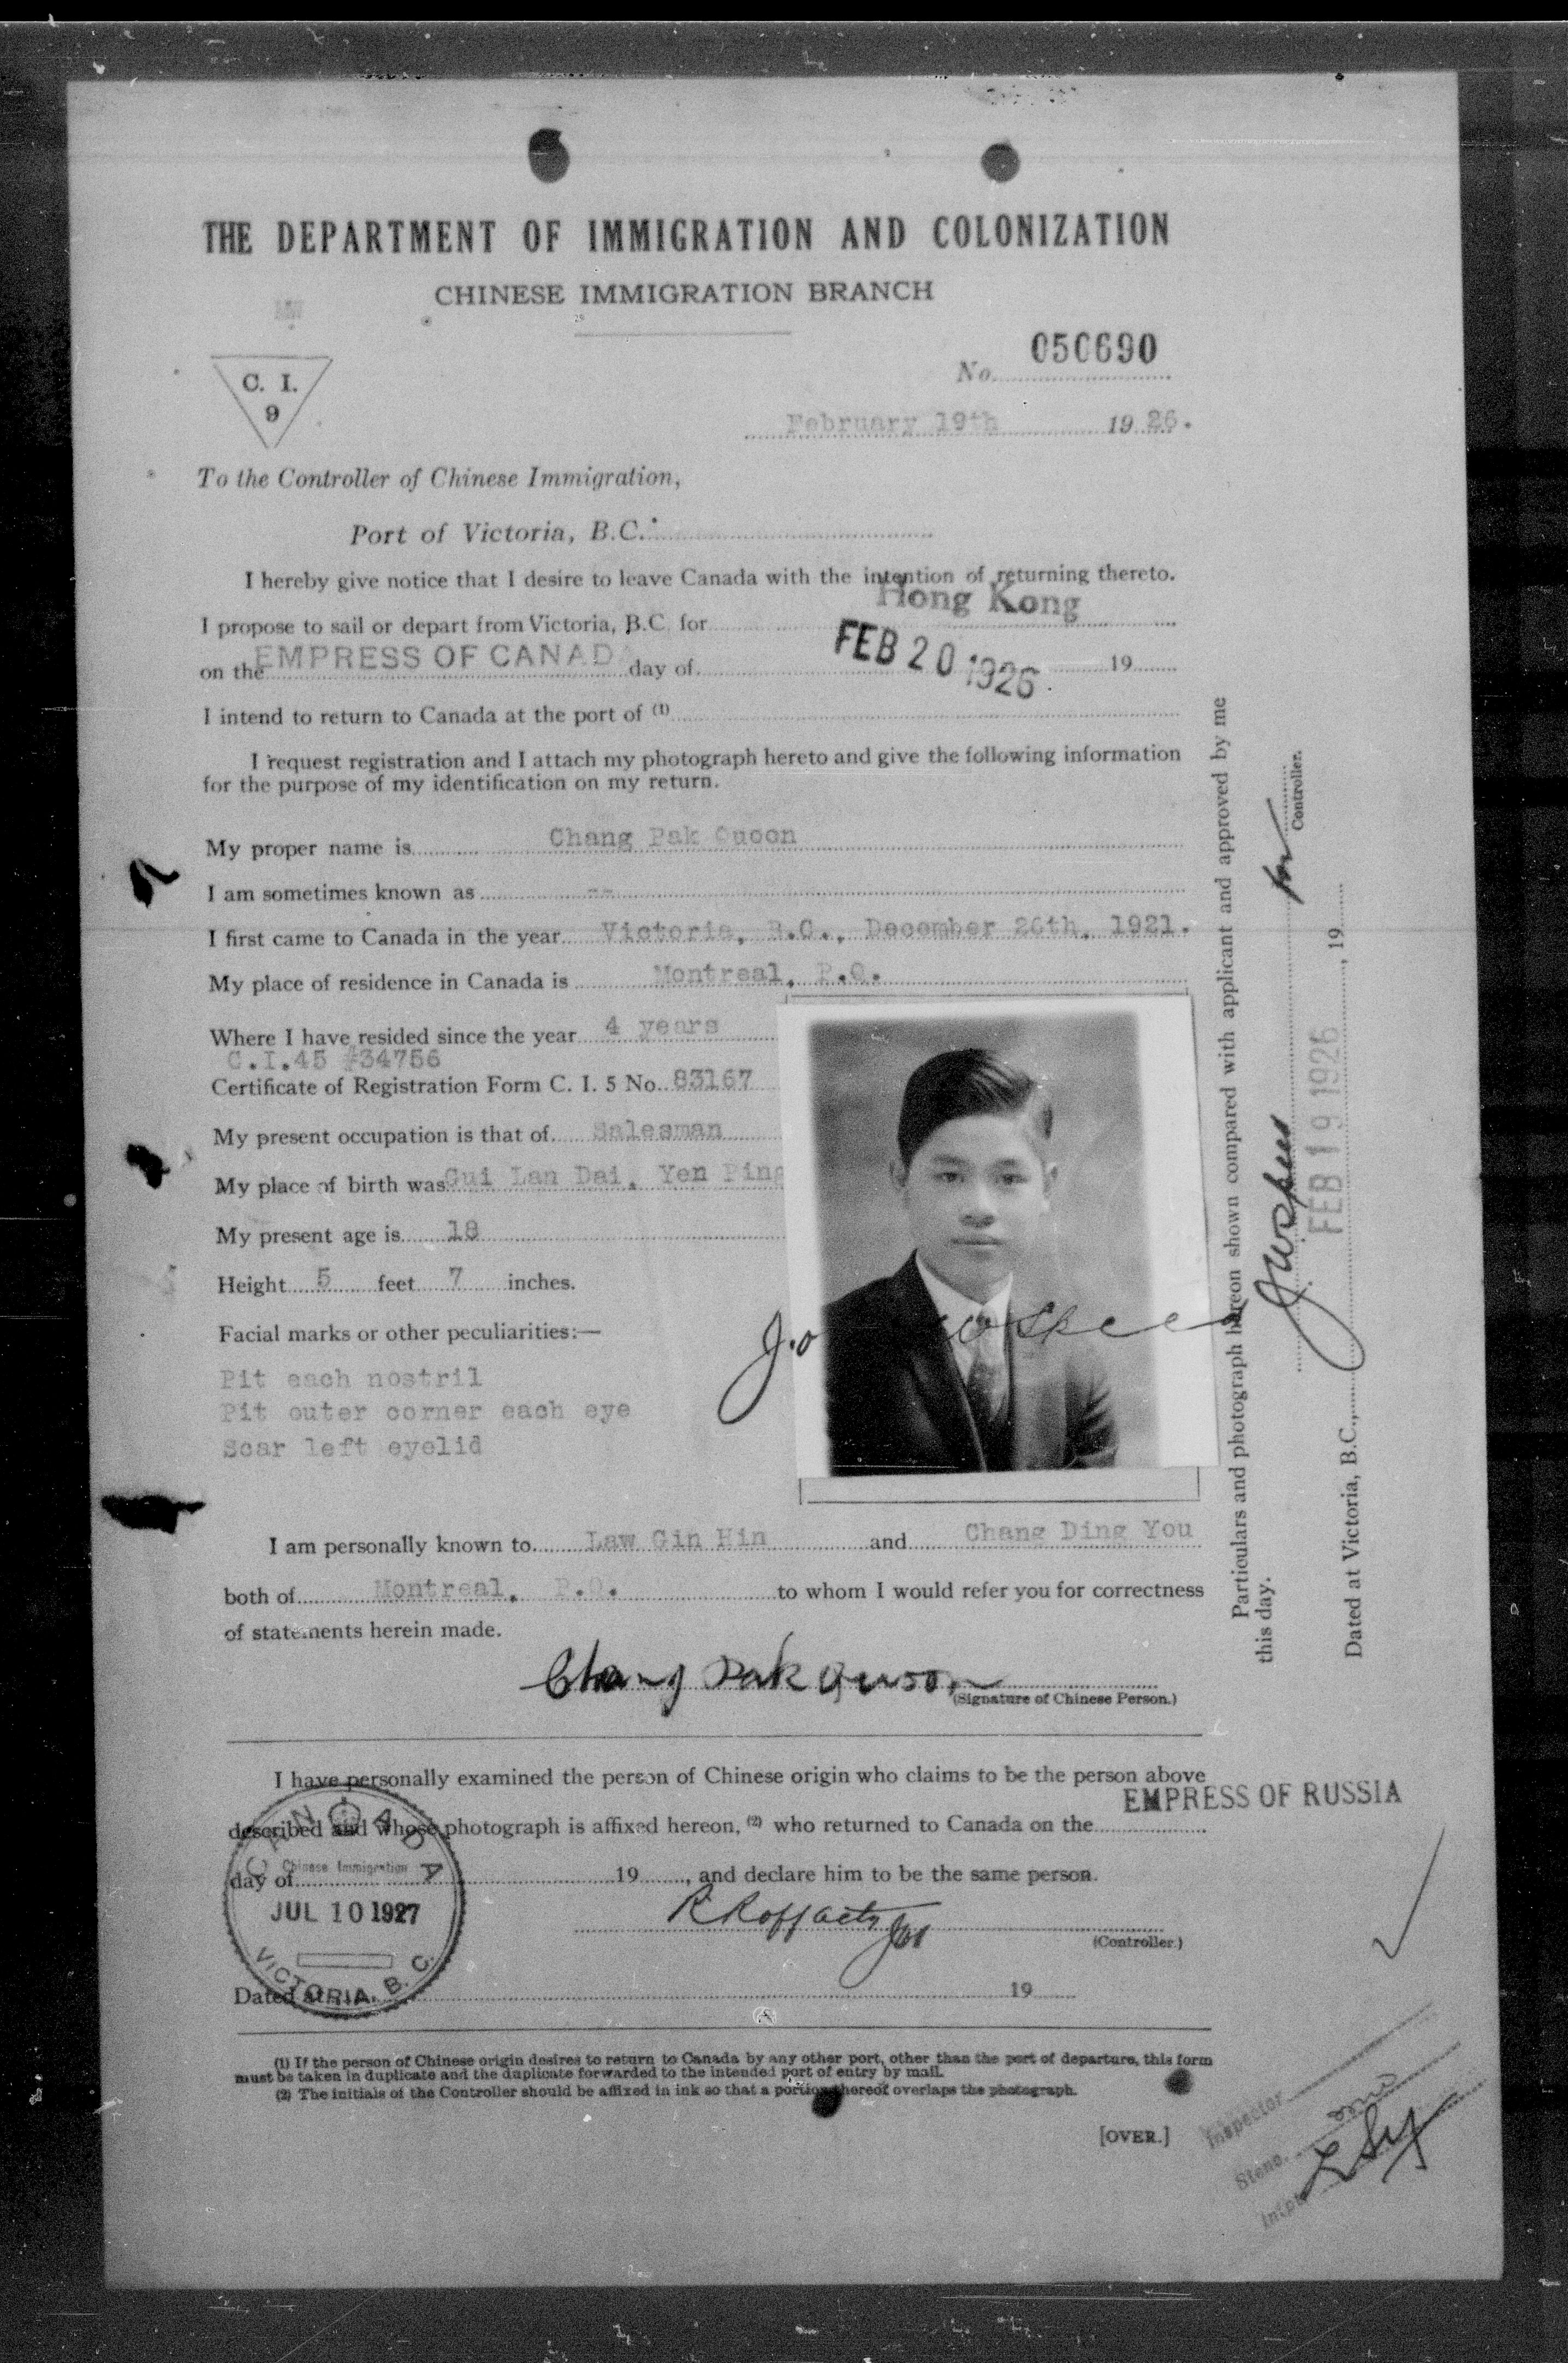 THE DEPARTMENT OF IMMIGRATION AND COLONIZATION
CHINESE IMMIGRATION BRANCH
C. I.
9
No. 050690
February 19th 1926.
To the Controller of Chinese Immigration,
Port of Victoria, B.C.
I hereby give notice that I desire to leave Canada with the intention of returning thereto.
Hong Kong
I propose to sail or depart from Victoria, B.C. for
on the EMPRESS OF CANADA day of FEB 20 1926. 19
I intend to return to Canada at the port of (1)
I request registration and I attach my photograph hereto and give the following information
for the purpose of my identification on my return.
My proper name is Chang Pak Quoon
I am sometimes known as --
I first came to Canada in the year Victoria, B.C., December 26th, 1921.
My place of residence in Canada is Montreal, P.Q.
Where I have resided since the year 4 years
C.I.45 #34756
Certificate of Registration Form C. I. 5 No. 83167
My present occupation is that of Salesman
My place of birth was Gui Lan Dai, Yen Ping
My present age is 18
Height 5 feet 7 inches.
Facial marks or other peculiarities:—
Pit each nostril
Pit outer corner each eye
Scar left eyelid
I am personally known to Law Gin Hin and Chang Ding You
both of Montreal, P.Q. to whom I would refer you for correctness
of statements herein made.
Chang Pak Quoon
(Signature of Chinese Person.)
I have personally examined the person of Chinese origin who claims to be the person above
EMPRESS OF RUSSIA
described and whose photograph is affixed hereon, (2) who returned to Canada on the
day of 19, and declare him to be the same person.
(Controller.)
Dated at 19
CANADA
Chinese Immigration
JUL 10 1927
VICTORIA. B. C.
(1) If the person of Chinese origin desires to return to Canada by any other port, other than the port of departure, this form
must be taken in duplicate and the duplicate forwarded to the intended port of entry by mail.
(2) The initials of the Controller should be affixed in ink so that a portion thereof overlaps the photograph.
[OVER.]
Inspector
Steno.
Intpr.
Particulars and photograph hereon shown compared with applicant and approved by me
this day.
for Controller.
Dated at Victoria, B.C., FEB 19 1926, 19